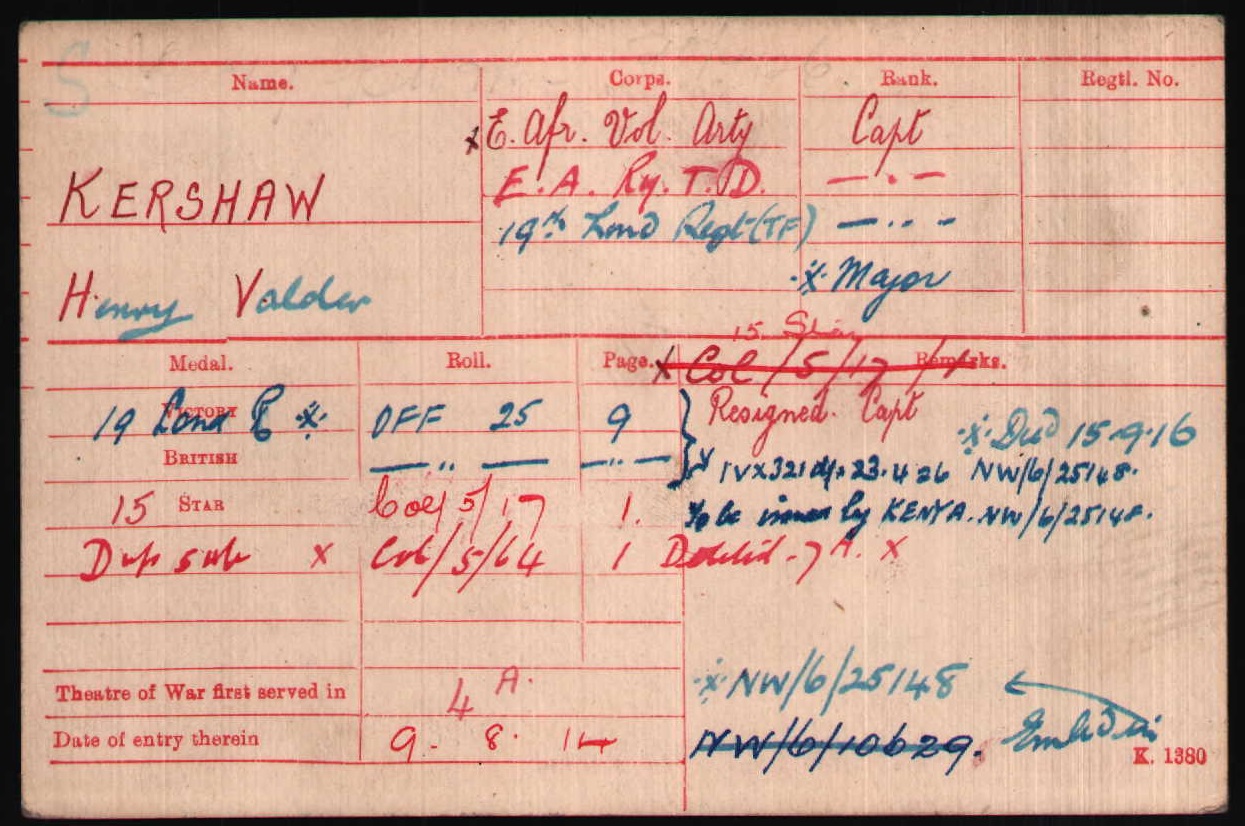 S
Name. Corps. Rank. Regtl. No.
x E. Afr. Vol. Arty Capt
E. A. Ry. T. D. — . —
KERSHAW
19th Lond Regt (TF) — .. —
Henry Valder ※ Major
15 Star
Medal. Roll. Page. Remarks.
x Col/5/17
Victory 19 Lond R ※ OFF 25 9 Resigned. Capt ※ Died 15-9-16
British — .. — — .. — IVX321 23.4.26 NW/6/25148.
15 Star Col/5/17 1. To be issued by KENYA. NW/6/25148.
Dup x Col/5/64 1 A. x
Theatre of War first served in 4 A. ※ NW/6/25148
Date of entry therein 9. 8. 14 NW/6/10629.
K. 1380